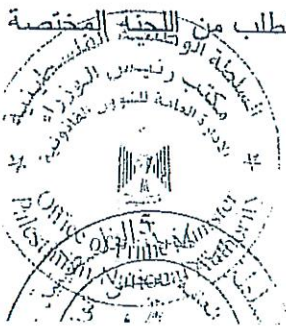 طلب من اللجنة المختصة
السلطة الوطنية الفلسطينية
مكتب رئيس الوزراء
الإدارة العامة للشؤون القانونية
Office of Prime Minister
Palestinian National Authority